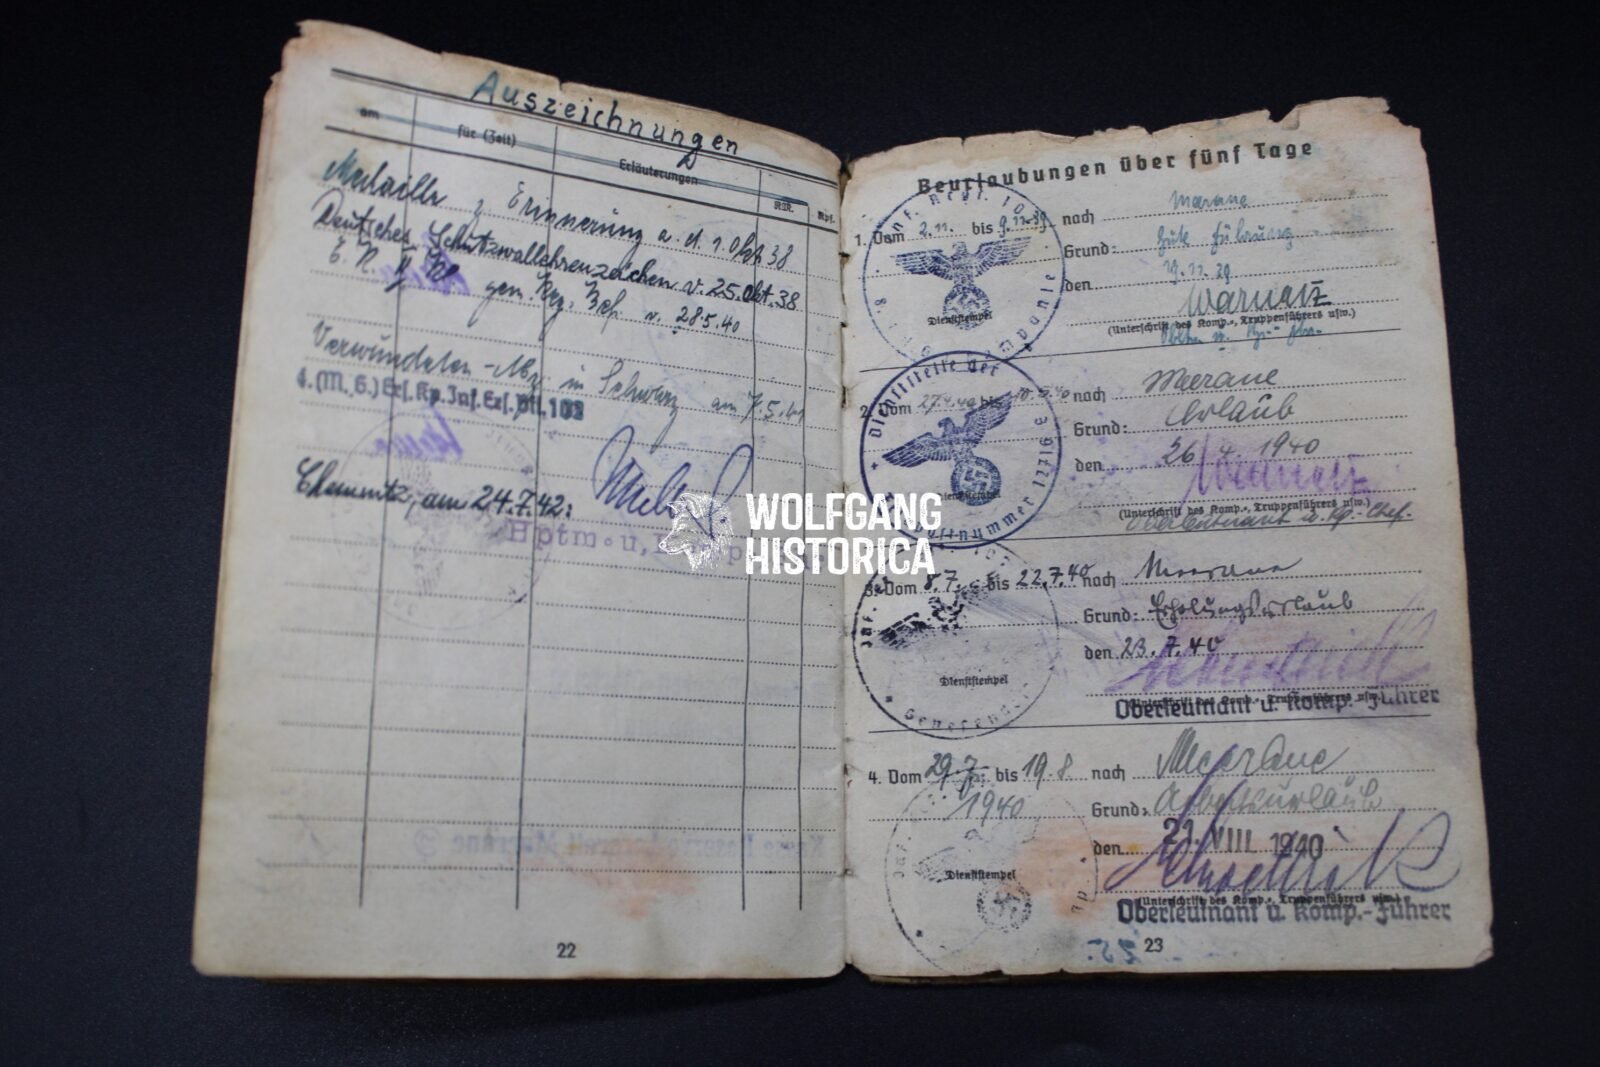 Auszeichnungen
am für (Zeit) Erläuterungen RM. Rpf.
Medaille z Erinnerung a. d. 1. Okt 38
Deutsches Schutzwallehrenzeichen v. 25.Okt.38
E. K. II Kl. gem. Reg. Bef. v. 28.5.40
Verwundeten-Abz in Schwarz am 7.5.41
4.(M.G.) Ers. Kp. Inf. Ers. Btl. 102
Chemnitz, am 24.7.42:
Hptm. u.
22
WOLFGANG
HISTORICA
Beurlaubungen über fünf Tage
1. Vom 2.11. bis 9.11.39 nach Meerane
Grund:
den 19.11.39
Warnatz
Dienststempel
(Unterschrift des Komp.-, Truppenführers usw.)
Dienststelle der
39177 E
2. Vom 27.4.40 bis 10.5.40 nach Meerane
Grund: Urlaub
den 26.4.1940
Warnatz
Dienststempel
(Unterschrift des Komp.-, Truppenführers usw.)
Oberleutnant u. Kp.-Chef.
3. Vom 8.7. bis 22.7.40 nach Meerane
Grund: Erholungsurlaub
den 23.7.40
Dienststempel
(Unterschrift des Komp.-, Truppenführers usw.)
Oberleutnant u. Komp.-Führer
4. Vom 29.7. bis 19.8 nach Meerane
1940
Grund: Arbeitsurlaub
den 21. VIII. 1940
Dienststempel
(Unterschrift des Komp.-, Truppenführers usw.)
Oberleutnant u. Komp.-Führer
23